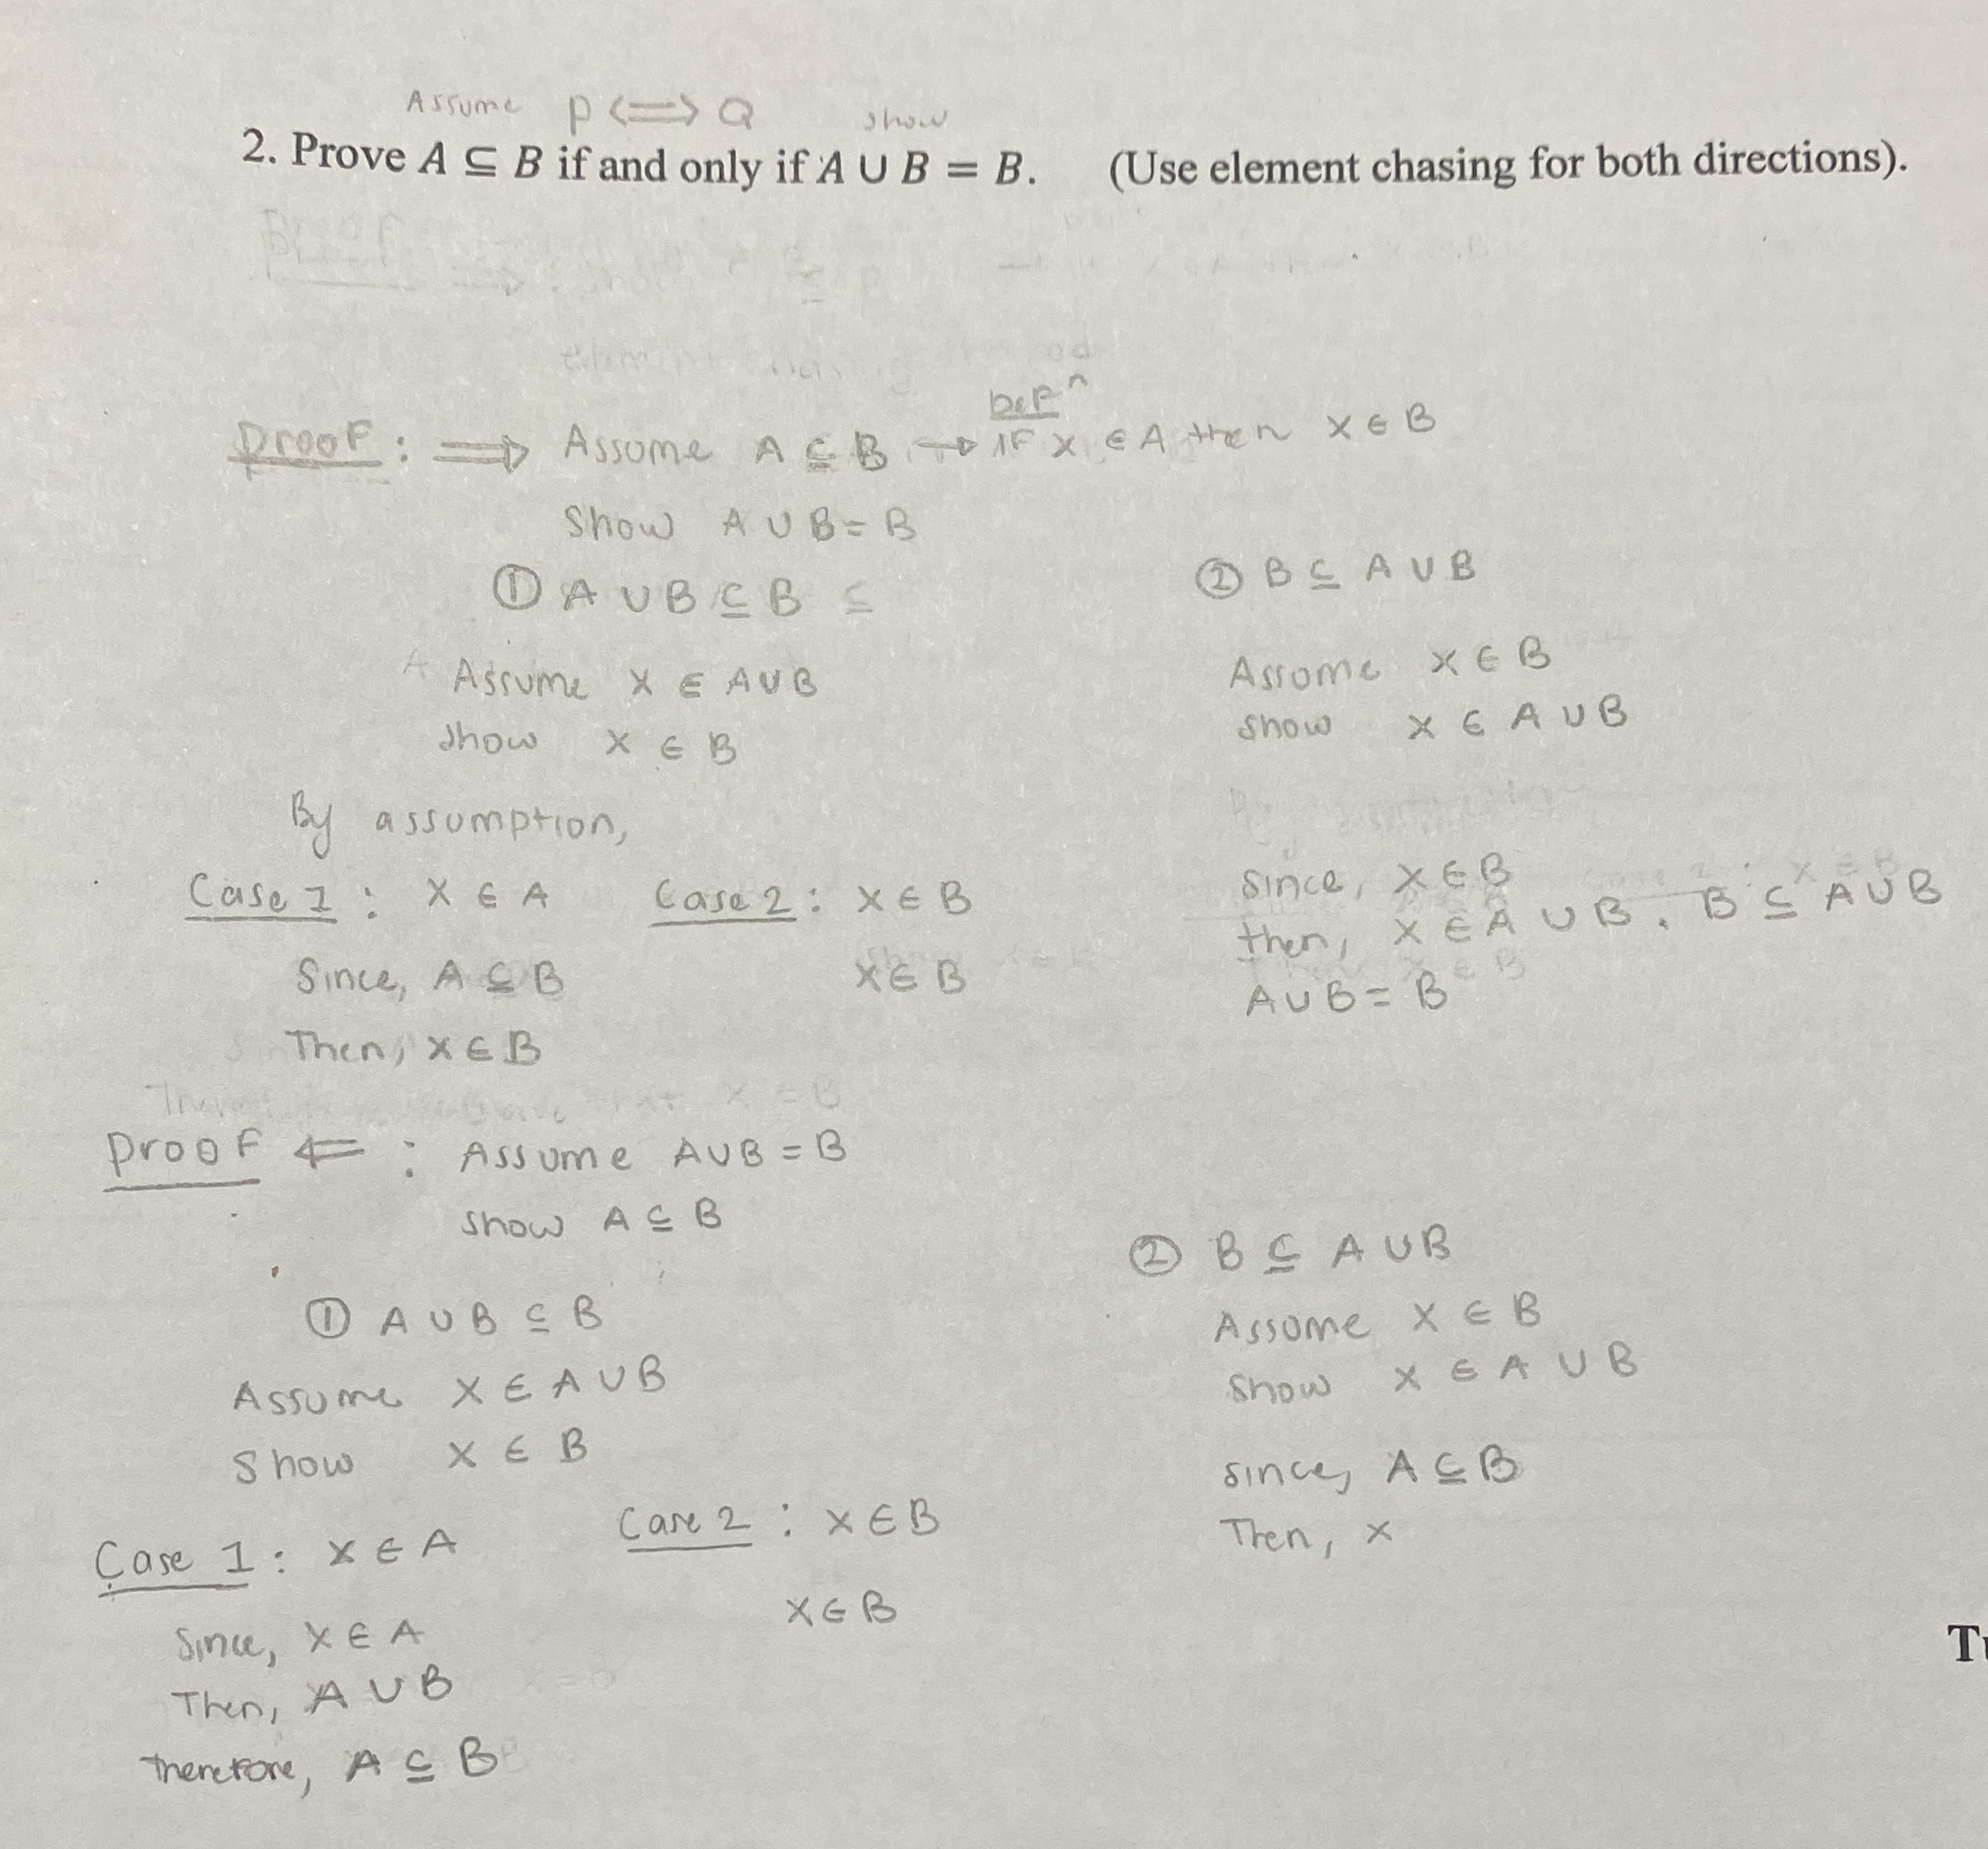 Assume P <=> Q show
2. Prove A ⊆ B if and only if A ∪ B = B. (Use element chasing for both directions).
Proof: => Assume A ⊆ B → Defⁿ IF x ∈ A then x ∈ B
Show A ∪ B = B
① A ∪ B ⊆ B ⊆
Assume x ∈ A ∪ B
show x ∈ B
By assumption,
Case 1: x ∈ A
Since, A ⊆ B
Then, x ∈ B
Case 2: x ∈ B
x ∈ B
② B ⊆ A ∪ B
Assume x ∈ B
show x ∈ A ∪ B
Since, x ∈ B
then, x ∈ A ∪ B. B ⊆ A ∪ B
A ∪ B = B
Proof <= : Assume A ∪ B = B
show A ⊆ B
① A ∪ B ⊆ B
Assume x ∈ A ∪ B
Show x ∈ B
Case 1: x ∈ A
Since, x ∈ A
Then, A ∪ B
Therefore, A ⊆ B
Case 2: x ∈ B
x ∈ B
② B ⊆ A ∪ B
Assume x ∈ B
Show x ∈ A ∪ B
since, A ⊆ B
Then, x